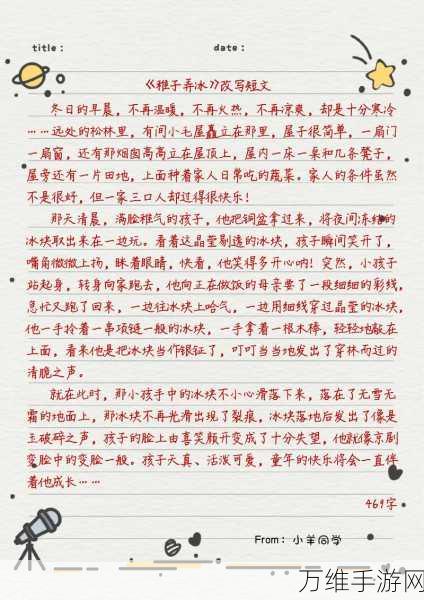 title：
date：
《稚子弄冰》改写短文
冬日的早晨，不再温暖，不再火热，不再凉爽，却是十分寒冷
……远处的松林里，有间小毛屋矗立在那里，屋子很简单，一扇门
一扇窗，还有那烟囱高高立在屋顶上，屋内一床一桌和几条凳子，
屋旁还有一片田地，上面种着家人日常吃的蔬菜。家人的条件虽然
不是很好，但一家三口人却过得很快乐！
那天清晨，满脸稚气的孩子，他把铜盆拿过来，将夜间冻结的
冰块取出来在一边玩。看着这晶莹剔透的冰块，孩子瞬间笑开了，
嘴角微微上扬，眯着眼睛，快看，他笑得多开心呐！突然，小孩子
站起身，转身向家跑去，他向正在做饭的母亲要了一段细细的彩线，
急忙又跑了回来，一边往冰块上哈气，一边用细线穿过晶莹的冰块，
他一手拎着一串项链一般的冰块，一手拿着一根木棒，轻轻地敲在
上面，看来他是把冰块当作银钲了，叮叮当当地发出了穿林而过的
清脆之声。
就在此时，那小孩手中的冰块不小心滑落下来，落在了无雪无
霜的地面上，那冰块不再光滑出现了裂痕，冰块落地后发出了像是
玉破碎之声，孩子的脸上由喜笑颜开变成了十分失望，他就像京剧
变脸中的变脸一般。孩子天真、活泼可爱，童年的快乐将会一直伴
着他成长……
469字
From：小羊同学
万维手游网